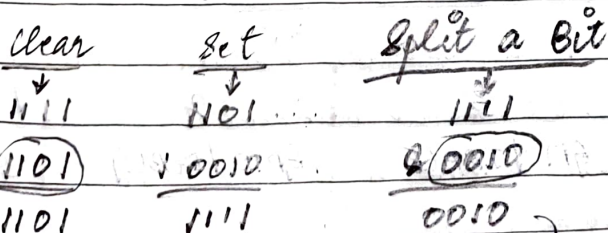 Clear Set Split a Bit
↓ ↓ ↓
1111 1101 1111
1101 | 0010 & 0010
1101 1111 0010